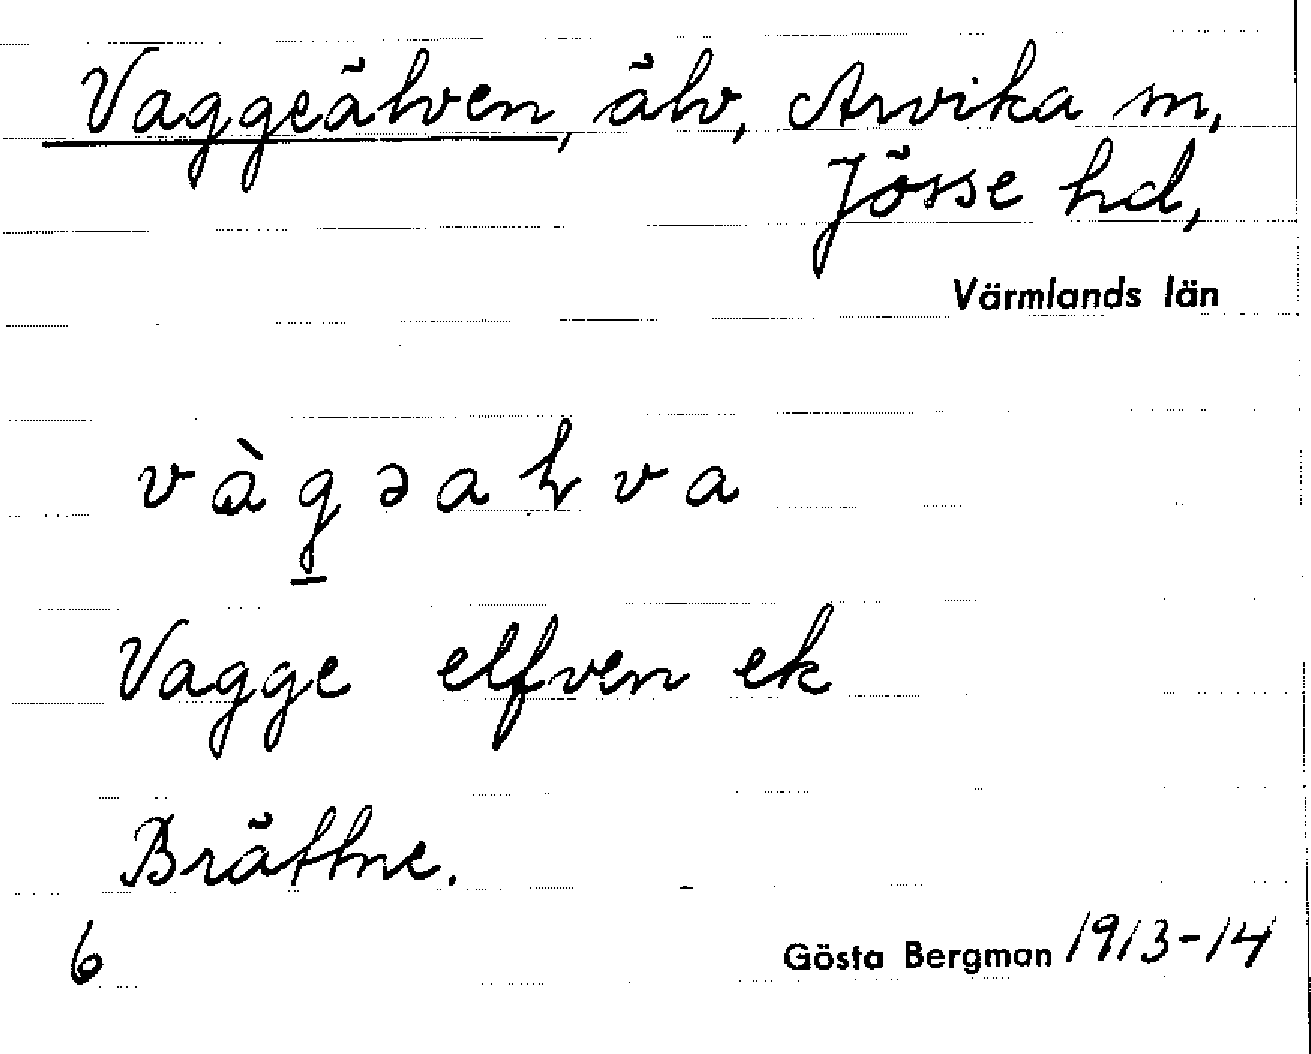 Vaggeälven, älv, Arvika m,
Jösse hd,
Värmlands län
vàgəalva
Vagge elfven ek
Brättne.
6 Gösta Bergman 1913-14